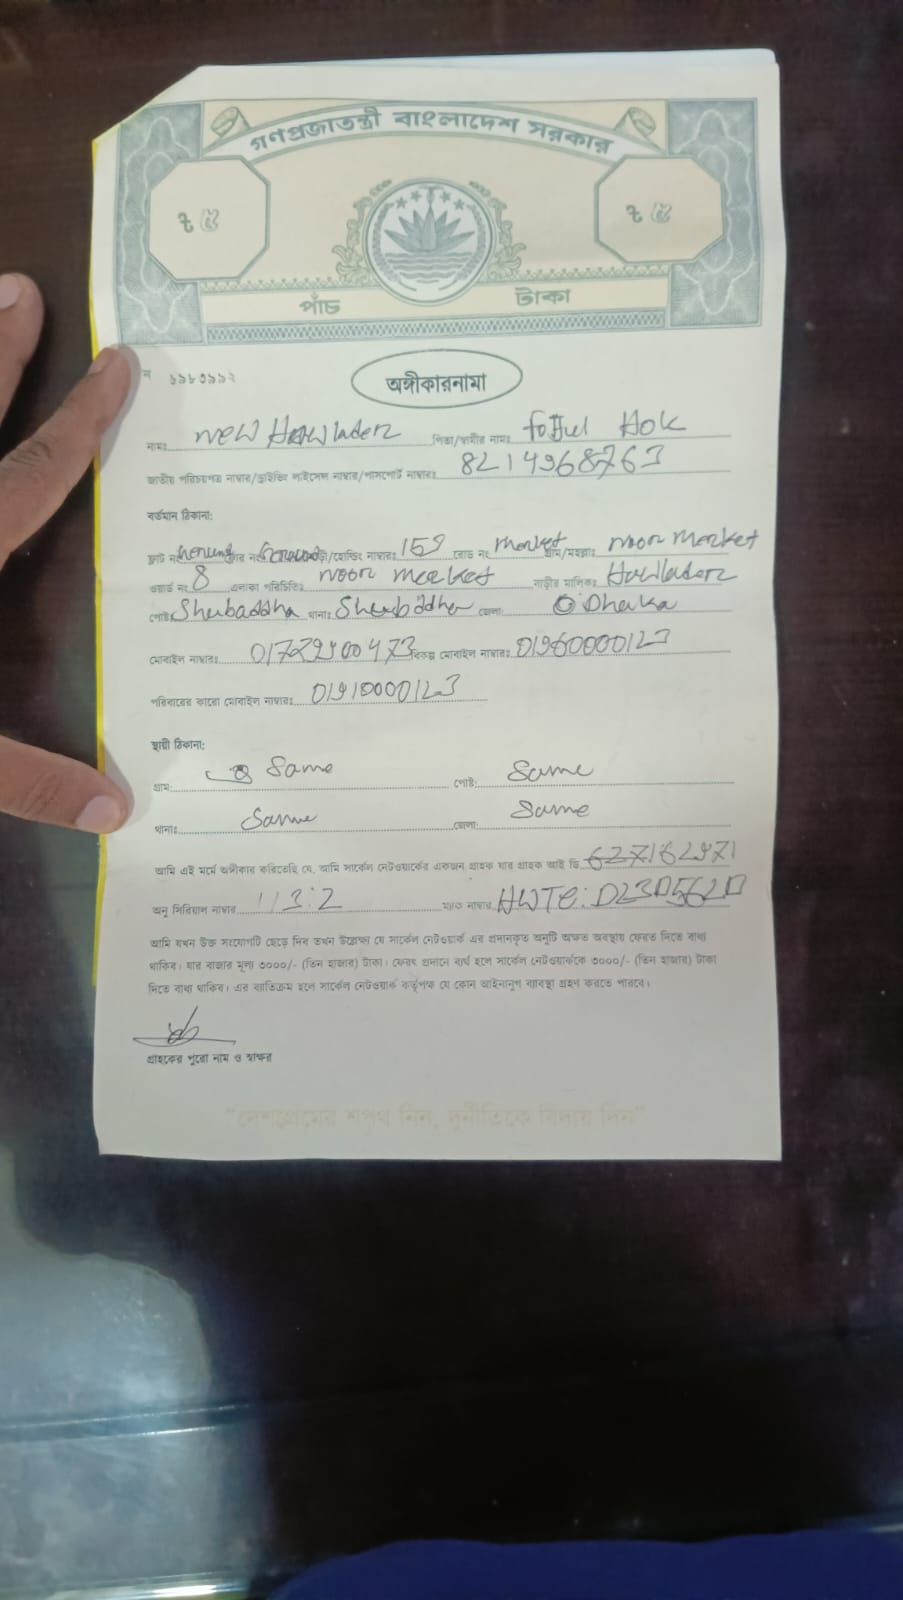 গণপ্রজাতন্ত্রী বাংলাদেশ সরকার
৳ ৫ ৳ ৫
পাঁচ টাকা
ন ১৯৮৩৯৯২
অঙ্গীকারনামা
নামঃ New Howlader পিতা/স্বামীর নামঃ Hok
জাতীয় পরিচয়পত্র নাম্বার/ড্রাইভিং লাইসেন্স নাম্বার/পাসপোর্ট নাম্বারঃ 8214968763
বর্তমান ঠিকানা:
ফ্লাট নং হোল্ডিং নাম্বারঃ 159 রোড নং Market গ্রাম/মহল্লাঃ Noor Market
ওয়ার্ড নং 8 এলাকা পরিচিতিঃ Noor Market বাড়ীর মালিকঃ Howlader
পোষ্টঃ Shubaddha থানাঃ Shubaddha জেলাঃ Dhaka
মোবাইল নাম্বারঃ বিকল্প মোবাইল নাম্বারঃ 01960000123
পরিবারের কারো মোবাইল নাম্বারঃ 01910000123
স্থায়ী ঠিকানা:
গ্রামঃ Same পোষ্টঃ Same
থানাঃ Same জেলাঃ Same
আমি এই মর্মে অঙ্গীকার করিতেছি যে, আমি সার্কেল নেটওয়ার্কের একজন গ্রাহক যার গ্রাহক আই ডি
অনু সিরিয়াল নাম্বার 113:2 ম্যাক নাম্বার HWTC:D23D562D
আমি যখন উক্ত সংযোগটি ছেড়ে দিব তখন উল্লেক্ষ্য যে সার্কেল নেটওয়ার্ক এর প্রদানকৃত অনুটি অক্ষত অবস্থায় ফেরত দিতে বাধ্য
থাকিব। যার বাজার মূল্য ৩০০০/- (তিন হাজার) টাকা। ফেরৎ প্রদানে ব্যর্থ হলে সার্কেল নেটওয়ার্ককে ৩০০০/- (তিন হাজার) টাকা
দিতে বাধ্য থাকিব। এর ব্যতিক্রম হলে সার্কেল নেটওয়ার্ক কর্তৃপক্ষ যে কোন আইনানুগ ব্যবস্থা গ্রহণ করতে পারবে।
গ্রাহকের পুরো নাম ও স্বাক্ষর
"দেশপ্রেমের শপথ নিন, দুর্নীতিকে বিদায় দিন"